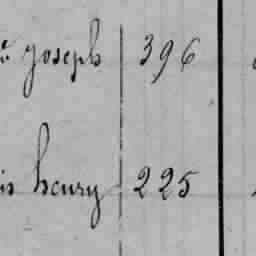 joseph 396
henry 225